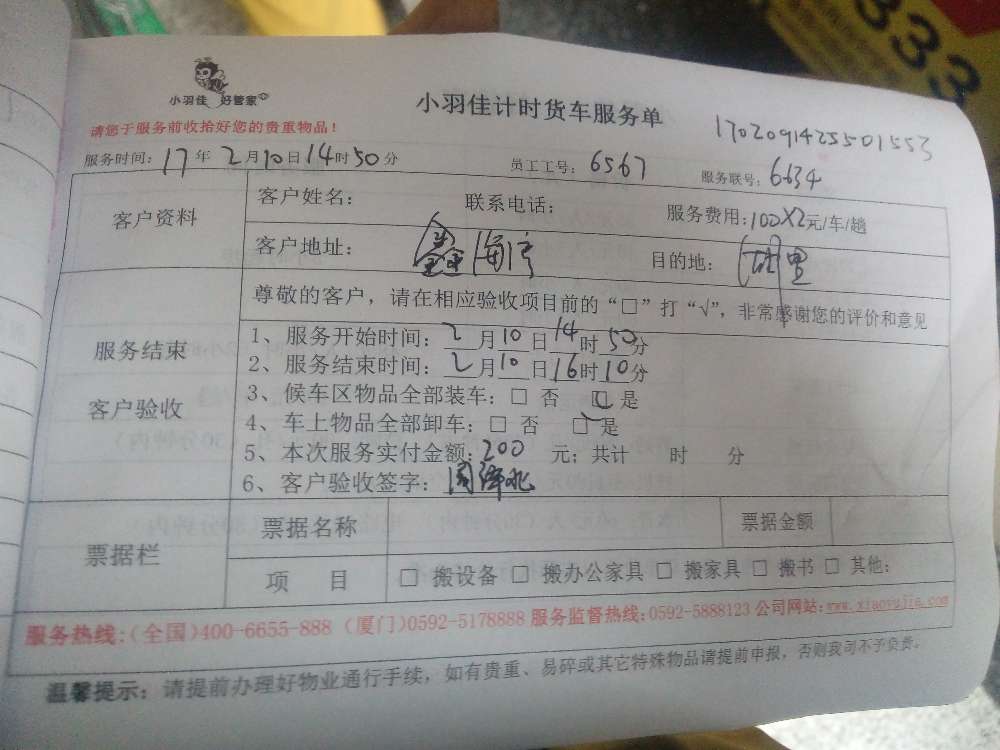 333
小羽佳 好管家
小羽佳计时货车服务单
1702091425501553
请您于服务前收拾好您的贵重物品！
服务时间：17年2月10日14时50分 员工工号：6567 服务联号：6634
客户资料
客户姓名： 联系电话： 服务费用：100X2元/车/趟
客户地址：鑫海湾 目的地：
尊敬的客户，请在相应验收项目前的“□”打“√”，非常感谢您的评价和意见
服务结束
客户验收
1、服务开始时间：2月10日14时50分
2、服务结束时间：2月10日16时10分
3、候车区物品全部装车：□ 否 □ 是
4、车上物品全部卸车：□ 否 □ 是
5、本次服务实付金额：200 元；共计 时 分
6、客户验收签字：
票据栏
票据名称 票据金额
项 目 □ 搬设备 □ 搬办公家具 □ 搬家具 □ 搬书 □ 其他：
服务热线：(全国)400-6655-888 (厦门)0592-5178888 服务监督热线：0592-5888123 公司网站：www.xiaoyujia.com
温馨提示：请提前办理好物业通行手续，如有贵重、易碎或其它特殊物品请提前申报，否则我司不予负责。